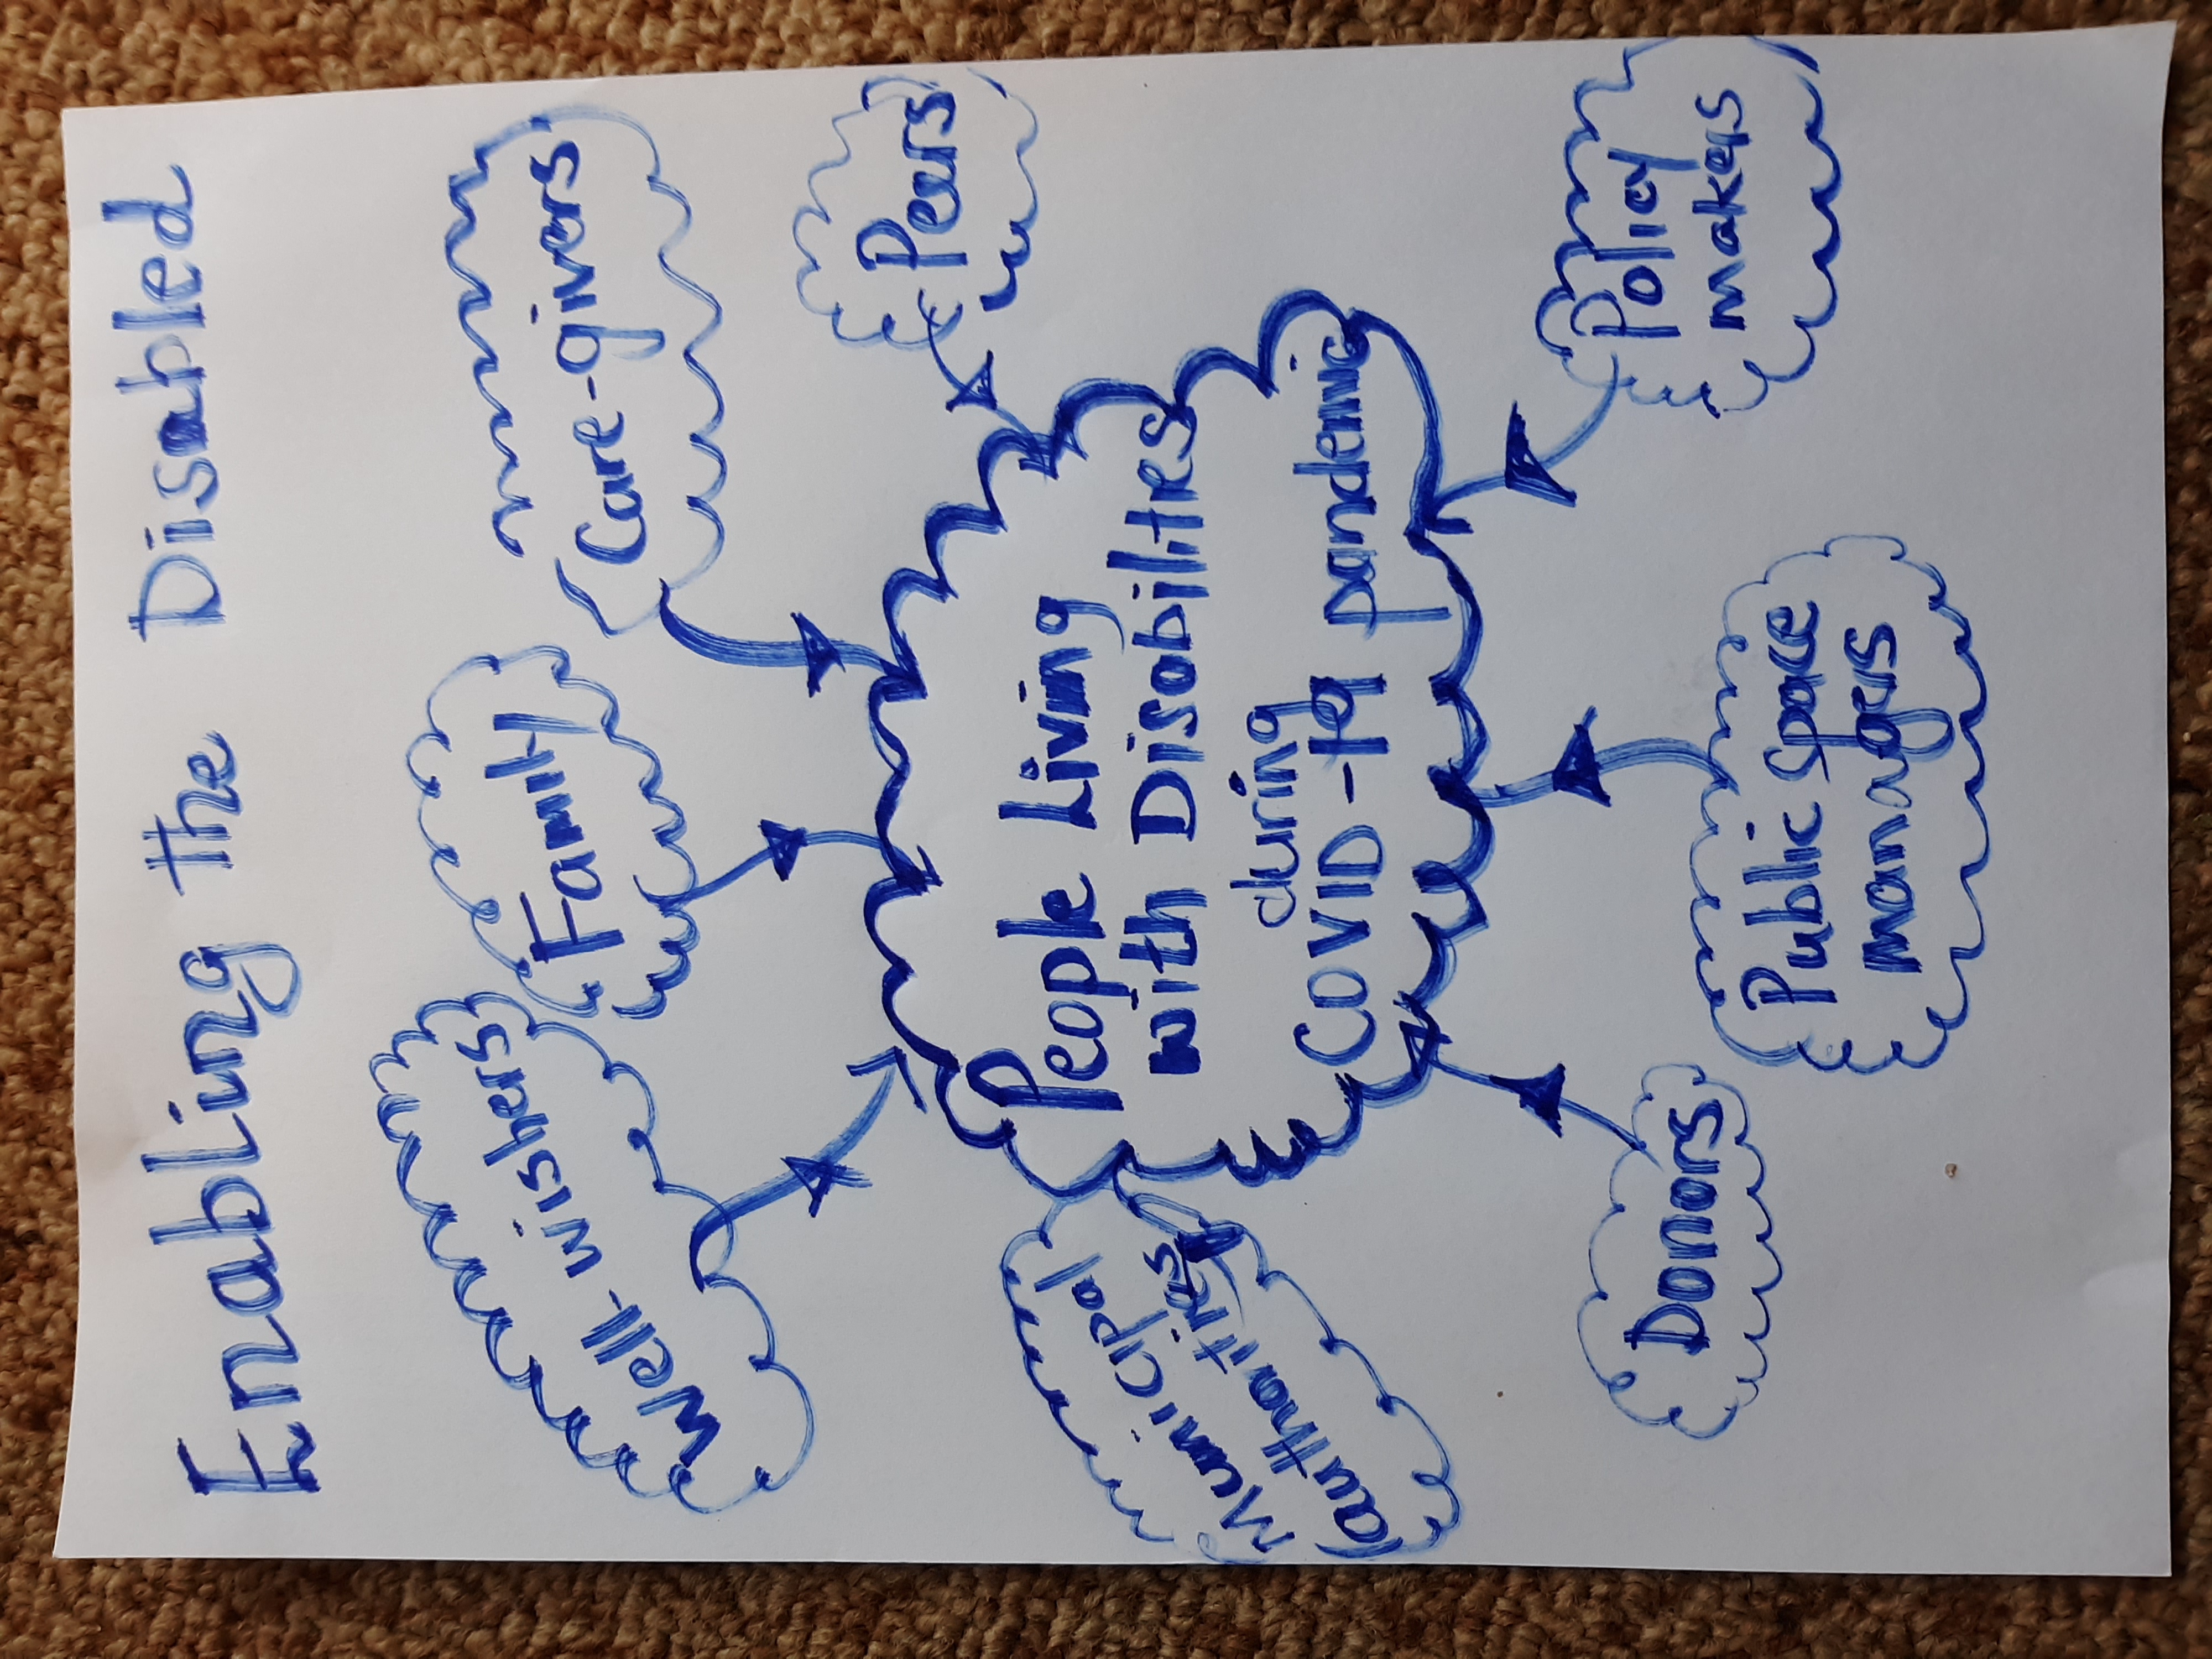 Enabling the Disabled
Well-wishers
Family
Care-givers
Pears
People Living
with Disabilities
during
COVID-19 pandemic
Municipal
authorities
Donors
Public space
managers
Policy
makers